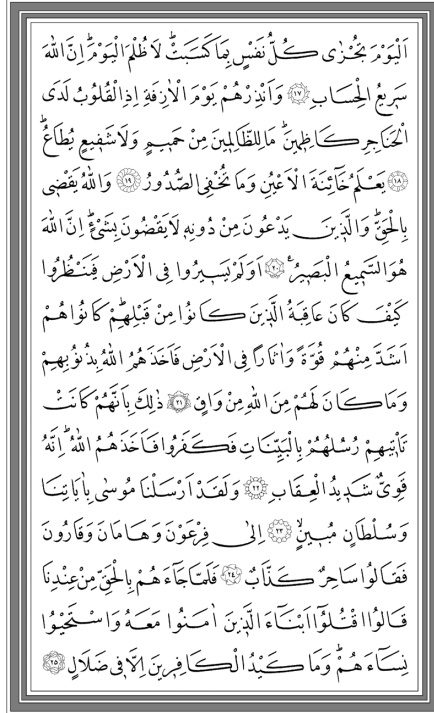 اَلْيَوْمَ تُجْزٰى كُلُّ نَفْسٍ بِمَا كَسَبَتْۜ لَا ظُلْمَ الْيَوْمَۜ اِنَّ اللّٰهَ
سَرِيعُ الْحِسَابِ ﴿١٧﴾ وَاَنْذِرْهُمْ يَوْمَ الْاٰزِفَةِ اِذِ الْقُلُوبُ لَدَى
الْحَنَاجِرِ كَاظِمِينَۜ مَا لِلظَّالِمِينَ مِنْ حَمِيمٍ وَلَا شَفِيعٍ يُطَاعُۜ
﴿١٨﴾ يَعْلَمُ خَٓائِنَةَ الْاَعْيُنِ وَمَا تُخْفِي الصُّدُورُ ﴿١٩﴾ وَاللّٰهُ يَقْضِي
بِالْحَقِّۜ وَالَّذِينَ يَدْعُونَ مِنْ دُونِهِ لَا يَقْضُونَ بِشَيْءٍۜ اِنَّ اللّٰهَ
هُوَ السَّمِيعُ الْبَصِيرُ۟ ﴿٢٠﴾ اَوَلَمْ يَسِيرُوا فِي الْاَرْضِ فَيَنْظُرُوا
كَيْفَ كَانَ عَاقِبَةُ الَّذِينَ كَانُوا مِنْ قَبْلِهِمْۜ كَانُوا هُمْ
اَشَدَّ مِنْهُمْ قُوَّةً وَاٰثَارًا فِي الْاَرْضِ فَاَخَذَهُمُ اللّٰهُ بِذُنُوبِهِمْ
وَمَا كَانَ لَهُمْ مِنَ اللّٰهِ مِنْ وَاقٍ ﴿٢١﴾ ذٰلِكَ بِاَنَّهُمْ كَانَتْ
تَأْتِيهِمْ رُسُلُهُمْ بِالْبَيِّنَاتِ فَكَفَرُوا فَاَخَذَهُمُ اللّٰهُۜ اِنَّهُ
قَوِيٌّ شَدِيدُ الْعِقَابِ ﴿٢٢﴾ وَلَقَدْ اَرْسَلْنَا مُوسٰى بِاٰيَاتِنَا
وَسُلْطَانٍ مُبِينٍۙ ﴿٢٣﴾ اِلٰى فِرْعَوْنَ وَهَامَانَ وَقَارُونَ
فَقَالُوا سَاحِرٌ كَذَّابٌ ﴿٢٤﴾ فَلَمَّا جَٓاءَهُمْ بِالْحَقِّ مِنْ عِنْدِنَا
قَالُوا اقْتُلُٓوا اَبْنَٓاءَ الَّذِينَ اٰمَنُوا مَعَهُ وَاسْتَحْيُوا
نِسَٓاءَهُمْۜ وَمَا كَيْدُ الْكَافِرِينَ اِلَّا فِي ضَلَالٍ ﴿٢٥﴾